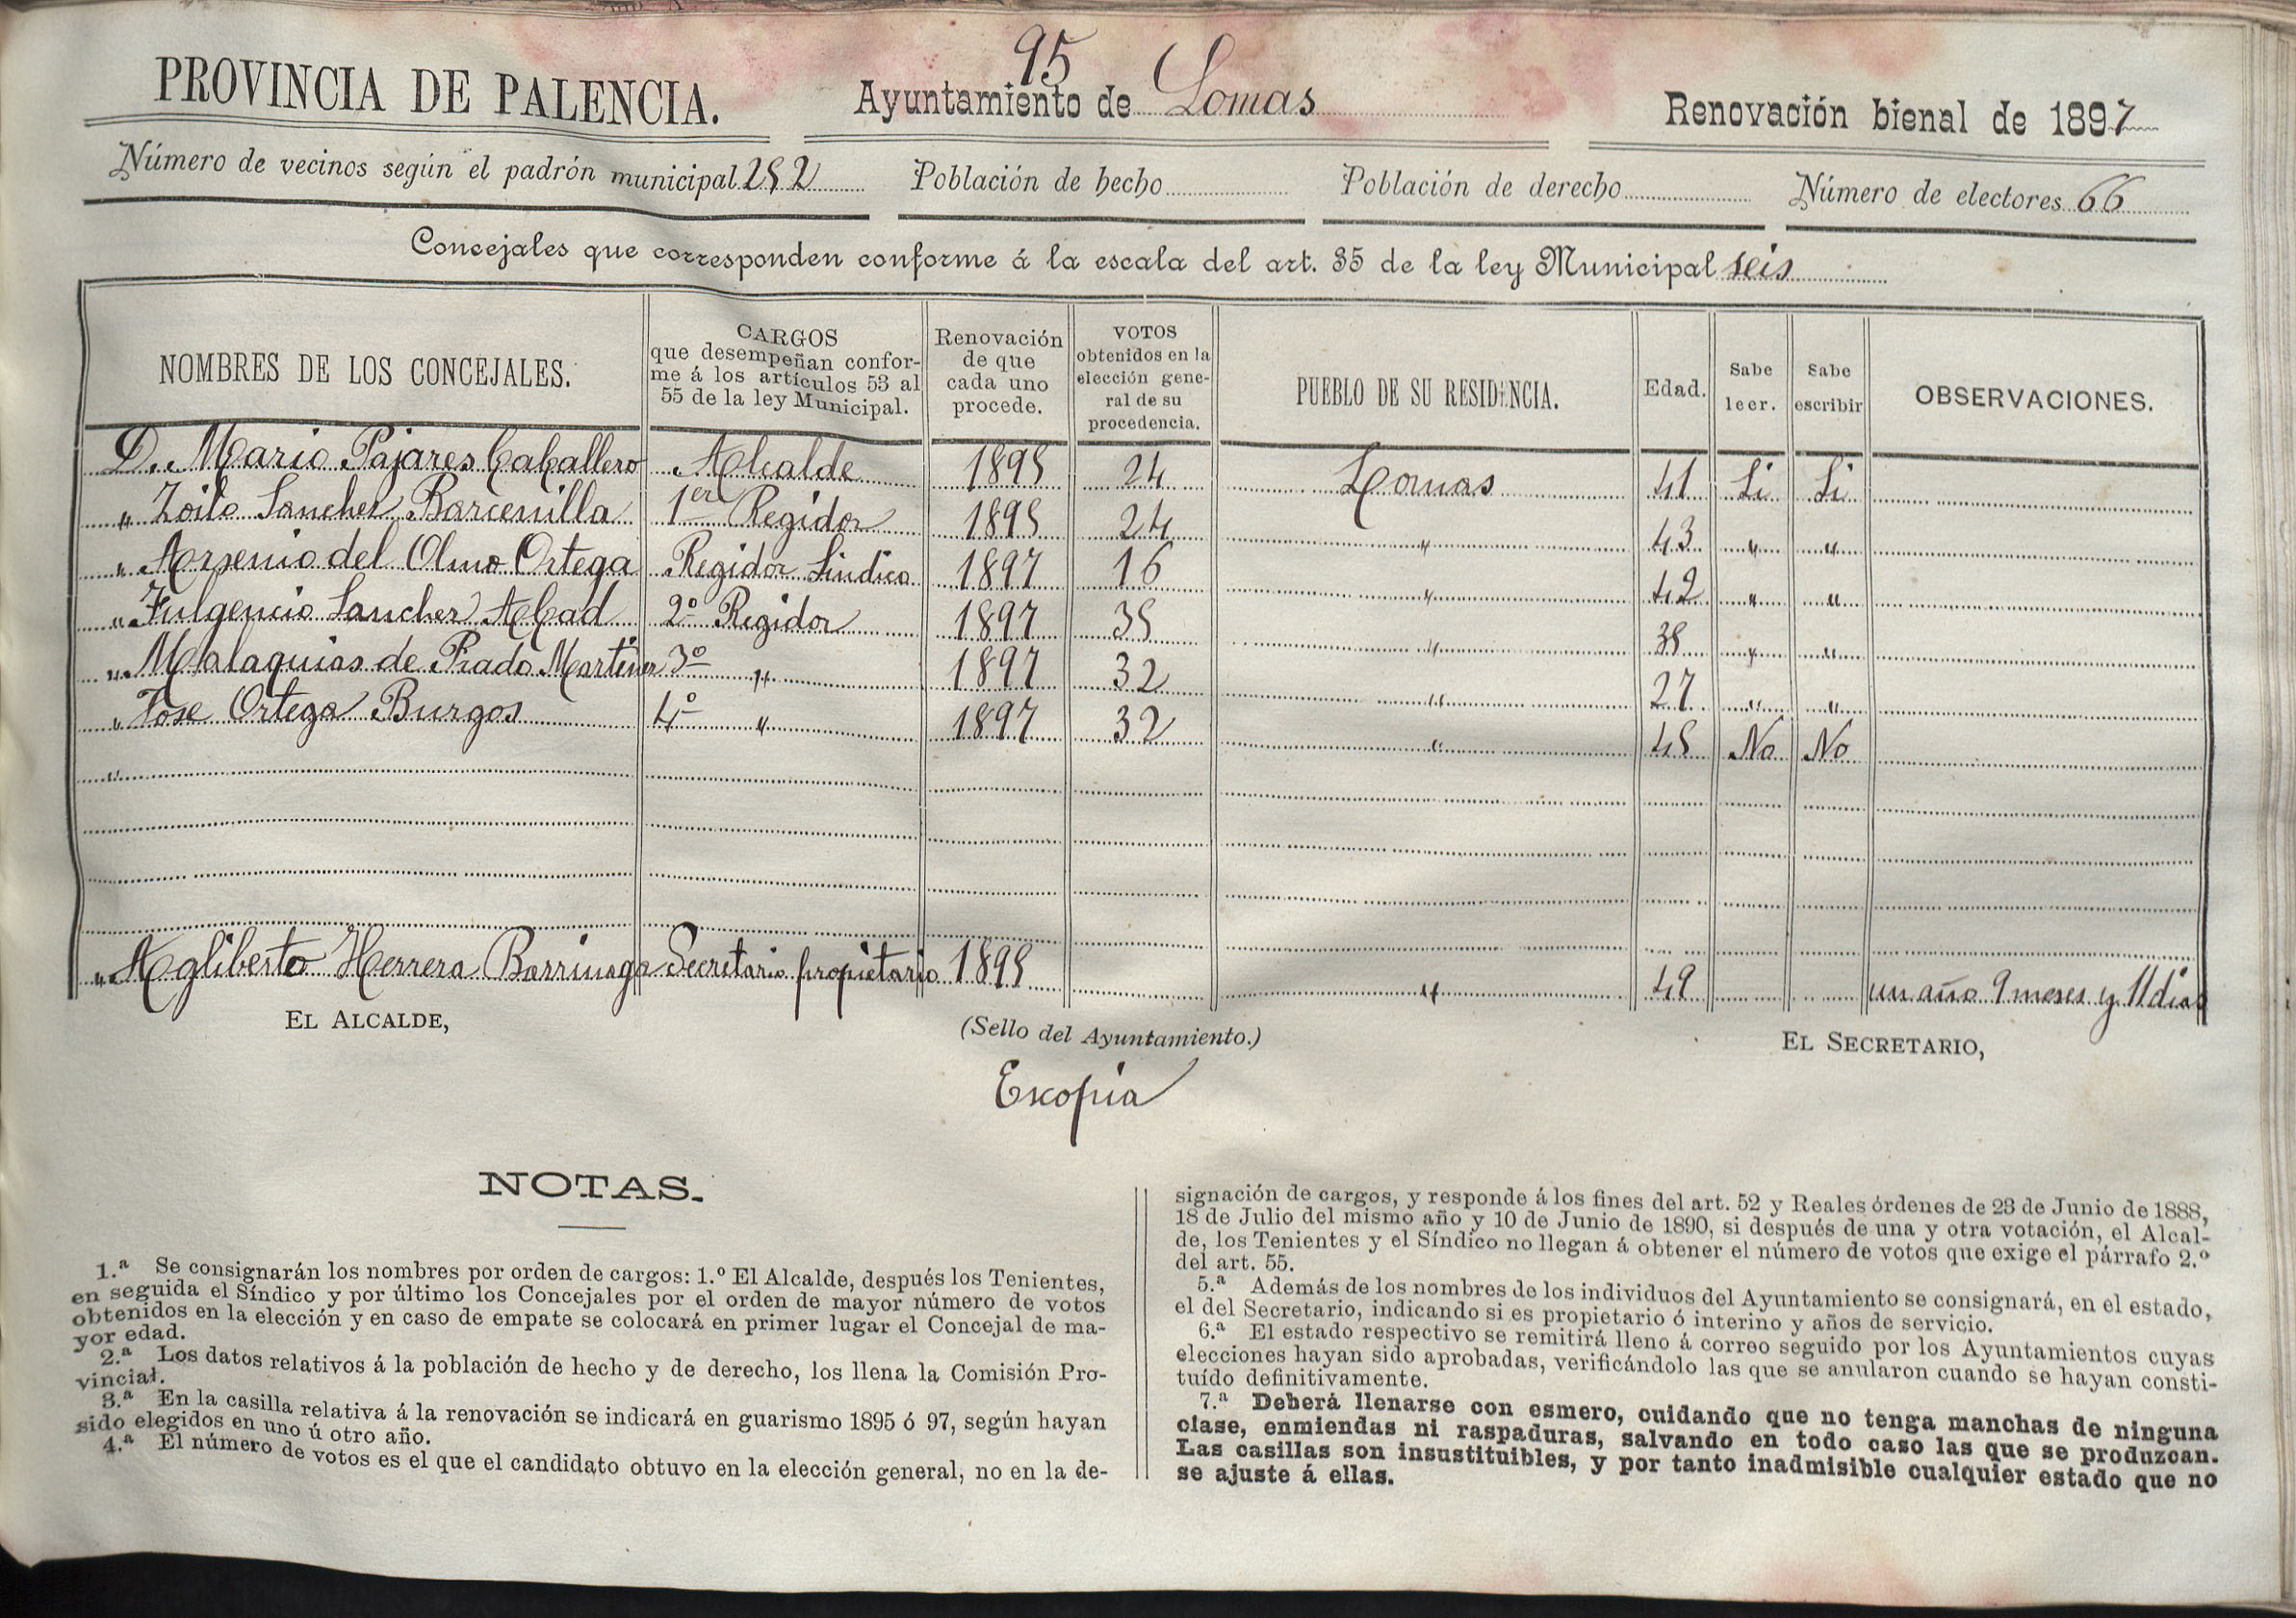 95
PROVINCIA DE PALENCIA. Ayuntamiento de Lomas Renovación bienal de 1897
Número de vecinos según el padrón municipal 252 Población de hecho Población de derecho Número de electores 66
Concejales que corresponden conforme á la escala del art. 35 de la ley Municipal seis
NOMBRES DE LOS CONCEJALES.
CARGOS
que desempeñan confor-
me á los artículos 53 al
55 de la ley Municipal.
Renovación
de que
cada uno
procede.
VOTOS
obtenidos en la
elección gene-
ral de su
procedencia.
PUEBLO DE SU RESIDENCIA.
Edad.
Sabe
leer.
Sabe
escribir
OBSERVACIONES.
D. Mario Pajares Caballero Alcalde 1895 24 Lomas 41 Si Si
" Zoilo Sanchez Barcenilla 1er Regidor 1895 24 " 43 " "
" Arsenio del Olmo Ortega Regidor Sindico 1897 16 " 42 " "
" Fulgencio Sanchez Abad 2º Regidor 1897 35 " 35 " "
" Malaquias de Prado Martinez 3º " 1897 32 " 27 " "
" Jose Ortega Burgos 4º " 1897 32 " 45 No No
"
" Agliberto Herrera Barrinaga Secretario propietario 1895 " 49 un año 9 meses y 11 dias
EL ALCALDE, (Sello del Ayuntamiento.) EL SECRETARIO,
Es copia
NOTAS.
1.ª Se consignarán los nombres por orden de cargos: 1.º El Alcalde, después los Tenientes,
en seguida el Síndico y por último los Concejales por el orden de mayor número de votos
obtenidos en la elección y en caso de empate se colocará en primer lugar el Concejal de ma-
yor edad.
2.ª Los datos relativos á la población de hecho y de derecho, los llena la Comisión Pro-
vincial.
3.ª En la casilla relativa á la renovación se indicará en guarismo 1895 ó 97, según hayan
sido elegidos en uno ú otro año.
4.ª El número de votos es el que el candidato obtuvo en la elección general, no en la de-
signación de cargos, y responde á los fines del art. 52 y Reales órdenes de 23 de Junio de 1888,
18 de Julio del mismo año y 10 de Junio de 1890, si después de una y otra votación, el Alcal-
de, los Tenientes y el Síndico no llegan á obtener el número de votos que exige el párrafo 2.º
del art. 55.
5.ª Además de los nombres de los individuos del Ayuntamiento se consignará, en el estado,
el del Secretario, indicando si es propietario ó interino y años de servicio.
6.ª El estado respectivo se remitirá lleno á correo seguido por los Ayuntamientos cuyas
elecciones hayan sido aprobadas, verificándolo las que se anularon cuando se hayan consti-
tuído definitivamente.
7.ª Deberá llenarse con esmero, cuidando que no tenga manchas de ninguna
clase, enmiendas ni raspaduras, salvando en todo caso las que se produzcan.
Las casillas son insustituibles, y por tanto inadmisible cualquier estado que no
se ajuste á ellas.